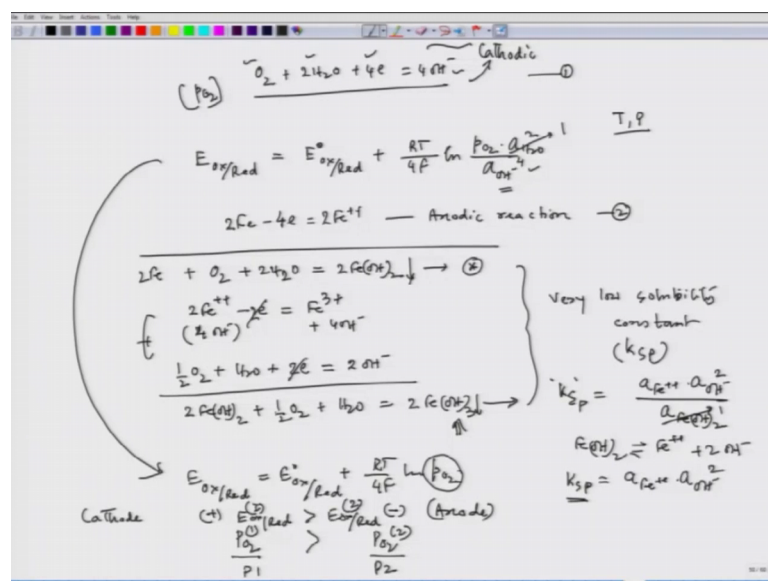 File Edit View Insert Actions Tools Help
Cathodic
O₂ + 2H₂O + 4e = 4OH⁻ — ①
(pO₂)
T, P
E_ox/Red = E°_ox/Red + RT/4F ln pO₂ · a²_H₂O / a_OH⁻⁴ 1
2Fe - 4e = 2Fe⁺⁺ — Anodic reaction — ②
2Fe + O₂ + 2H₂O = 2Fe(OH)₂ ↓ → *
2Fe⁺⁺ - 2e = Fe³⁺
(4OH⁻) + 4OH⁻
½O₂ + H₂O + 2e = 2OH⁻
2Fe(OH)₂ + ½O₂ + H₂O = 2Fe(OH)₃ ↓ →
Very low solubility
constant
(Ksp)
'K'sp = a_Fe⁺⁺ · a²_OH⁻ / a_Fe(OH)₂ 1
Fe(OH)₂ ⇌ Fe⁺⁺ + 2OH⁻
Ksp = a_Fe⁺⁺ · a²_OH⁻
E_ox/Red = E°_ox/Red + RT/4F ln pO₂
Cathode (+) E_ox/Red > E_ox/Red⁽²⁾ (-) (Anode)
pO₂⁽¹⁾ > pO₂⁽²⁾
P1 P2